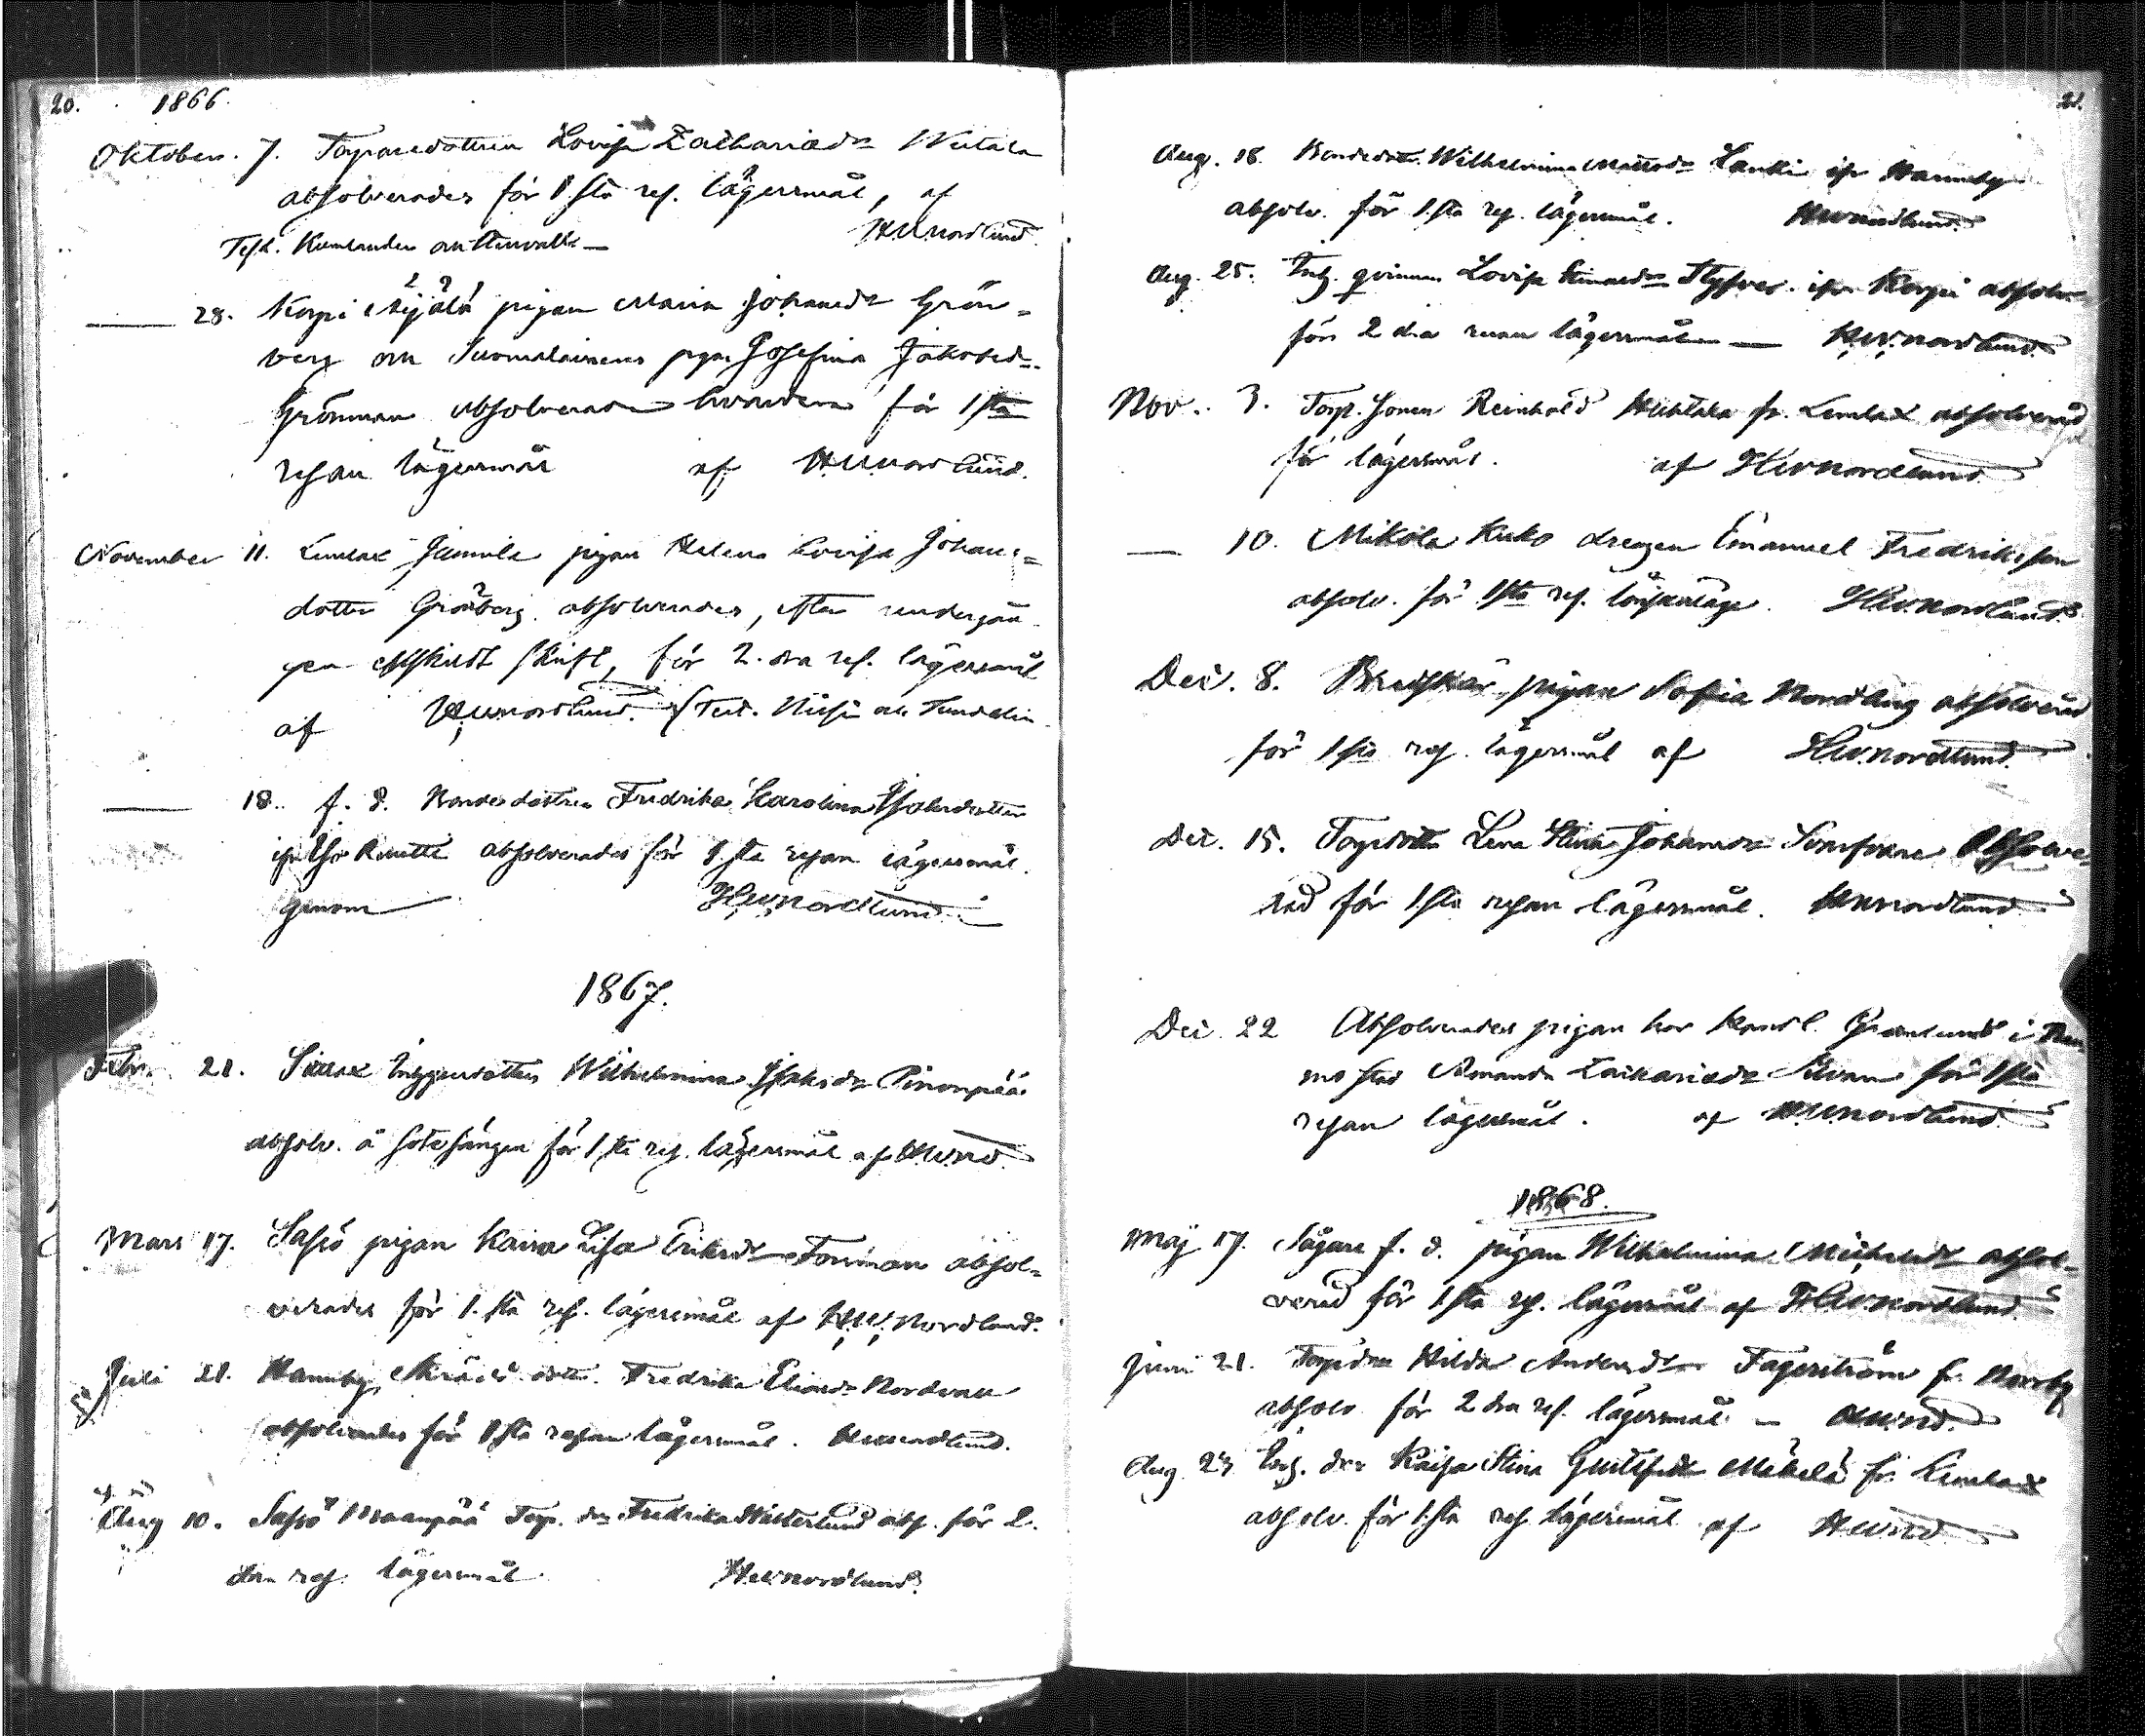 20. 1866.
Oktober. 7. Torparedottren Lovisa Zachariedr
absolverades för 1 sta res. lägersmål, af
HW Nordlund.
28. Korpi Äijälä pigan Maria Johansdr Grön-
berg och Suomalainens pigan Josefina Jakobsd.
Grönman absolverades hvardera för 1 sta
resan lägersmål af HW Nordlund.
November 11. Lemlax Jummila pigan Helena Lovisa Johans-
dotter Grönberg absolverades, efter undergån-
gen enskildt skrift, för 2. dra res. lägersmål
af HW Nordlund.
18. f. d. Bondedottren Fredrika Karolina Isaksdotter
absolverades för 1 sta resan lägersmål
genom HW Nordlund.
1867.
Febr. 21. Wilhelmina Isaksdr
absolv. å sotesängen för 1 sta res. lägersmål af HWNd.
Mars 17. pigan Kaisa Lisa Eriksdr Forsman absol-
verades för 1. sta res. lägersmål af HW Nordlund.
Juli 21. Hannuby Fredrika Eliaedr Nordvall
absolverades för 1 sta resan lägersmål. HW Nordlund.
Aug 10. Torp. dr Fredrika Westerlund abs. för 2.
dra res. lägersmål. HW Nordlund.
21.
Aug. 18. Bondedott. Wilhelmina Mattsdr Lankki ifr Hannuby
absolv. för 1. sta res. lägersmål. HW Nordlund.
Aug. 25. Inh. qvinnan Lovisa ifr Korpi absolv.
för 2 dra resan lägersmål — HW Nordlund.
Nov. 3. Torp. Sonen Reinhold Huhtala fr. Lemlax absolverad
för lägersmål. af HW Nordlund.
— 10. Mikola Kuko drengen Emanuel Fredriksson
absolv. för 1sta res. lönskaläge. HW Nordlund.
Dec. 8. pigan Sofia Nordling absolverad
för 1 sta res. lägersmål af HW Nordlund.
Dec. 15. Torpdottr Lena Stina Johansdr Absolve-
rad för 1. sta resan lägersmål. HW Nordlund.
Dec. 22 Absolverades pigan hos Handl. Grönlund i
stad Amanda Zachariaedr för 1 sta
resan lägersmål. af HW Nordlund.
1868.
Maj 17. f. d. pigan Wilhelmina Michelsdr absol-
verad för 1. sta res. lägersmål af HW Nordlund.
Juni 21. Torpdr Hilda Andersdr Fagerström fr.
absolv. för 2 dra res. lägersmål. — HWNd.
Aug 23 Inh. dr Kaisa Stina Gustafsdr Mäkelä fr. Lemlax
absolv. för 1. sta res lägersmål af HWNd